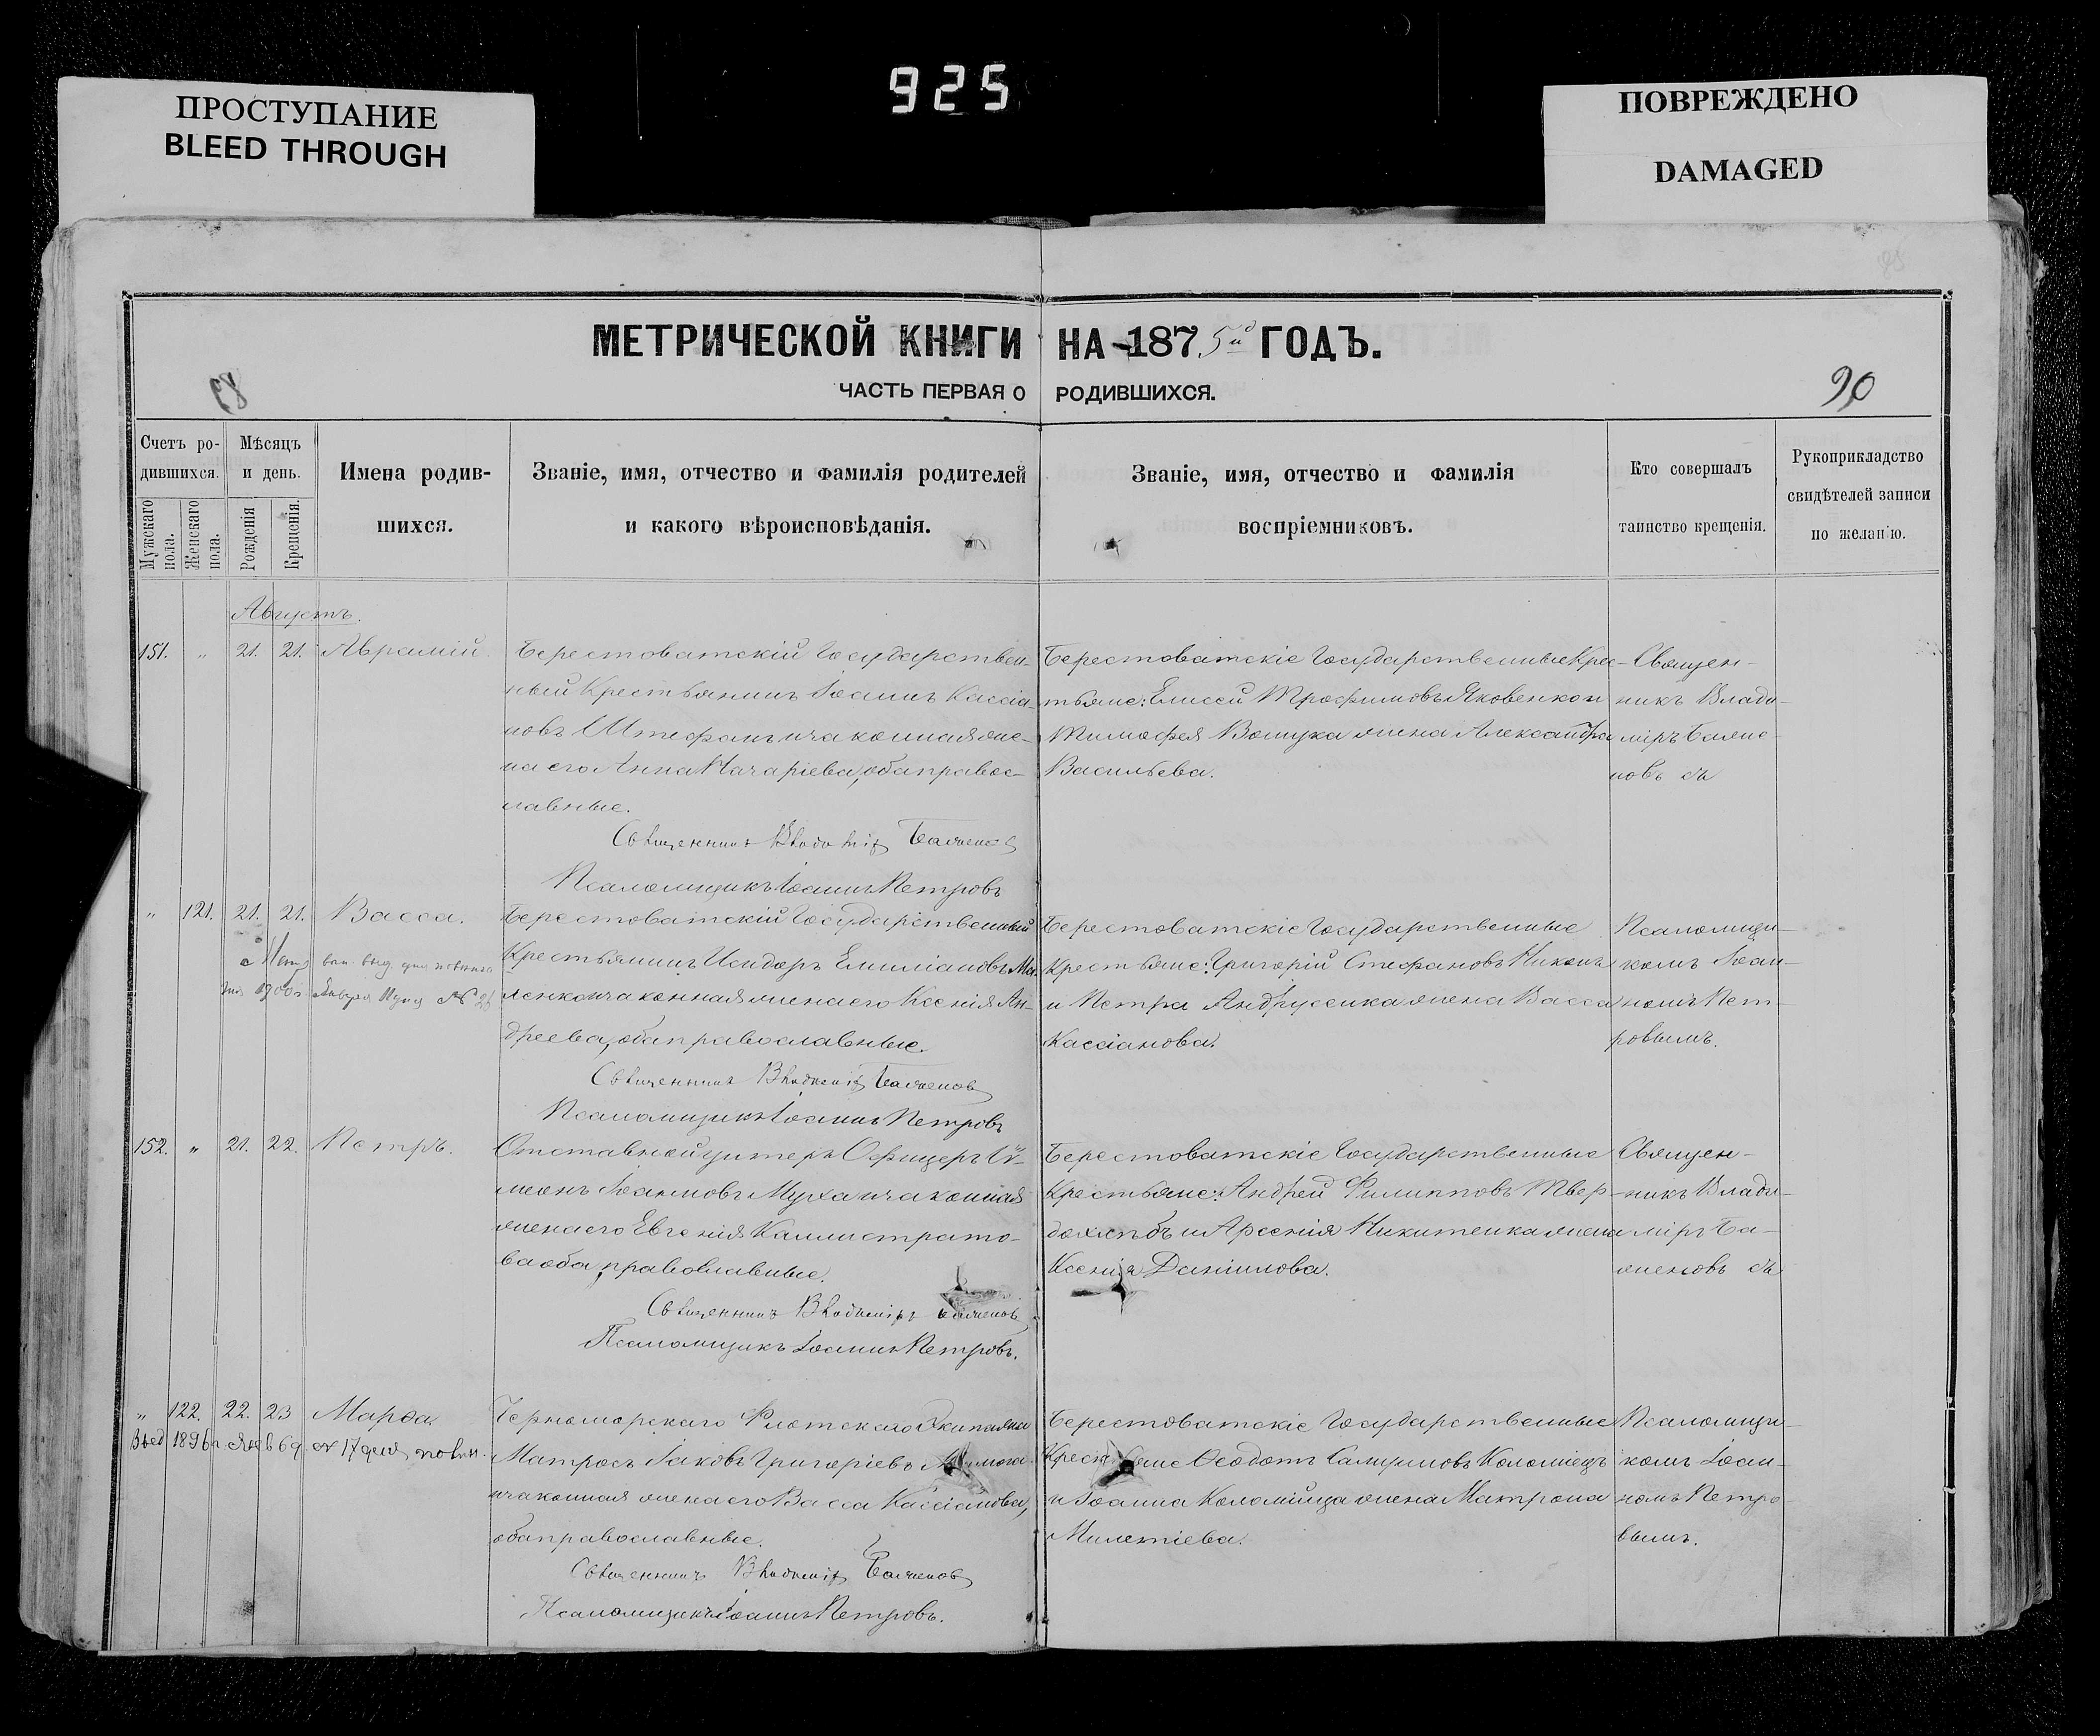 ПРОСТУПАНИЕ
BLEED THROUGH
925
ПОВРЕЖДЕНО
DAMAGED
МЕТРИЧЕСКОЙ КНИГИ НА 1875й ГОДЪ.
ЧАСТЬ ПЕРВАЯ О РОДИВШИХСЯ.
90
Счетъ родившихся.
Мужскаго пола.
Женскаго пола.
Мѣсяцъ и день.
Рожденія
Крещенія.
Имена родившихся.
Званіе, имя, отчество и фамилія родителей
и какого вѣроисповѣданія.
Званіе, имя, отчество и фамилія
воспріемниковъ.
Кто совершалъ
таинство крещенія.
Рукоприкладство
свидѣтелей записи
по желанію.
Августъ.
151. " 21. 21. Аврамій
Берестоватскій Государствен-
ный Крестьянинъ Іоаннъ Кассіа-
новъ Штефанъ и законная же-
на его Анна Макаріева, оба правос-
лавные.
Священникъ Владиміръ Баженовъ
Псаломщикъ Іоаннъ Петровъ
Берестоватскіе Государственные Крес-
тьяне: Елисей Трофимовъ Яковенко и
Тимофея жена Александра
Васильева.
Священ-
никъ Влади-
міръ Баже-
новъ съ
" 121. 21. 21. Васса.
1900 г. №
Берестоватскій Государственный
Крестьянинъ Исидоръ Емиліановъ Ми-
ленко и законная жена его Ксенія Ан-
дреева, оба православные.
Священникъ Владиміръ Баженовъ
Псаломщикъ Іоаннъ Петровъ
Берестоватскіе Государственные
Крестьяне: Григорій Стефановъ
и Петра Андрусенка жена Васса
Кассіанова.
Псаломщи-
комъ Іоан-
номъ Пет-
ровымъ.
152. " 21. 22. Петръ.
Отставной унтеръ Офицеръ Си-
меонъ Іоанновъ Муха и законная
жена его Евгенія Каллистрато-
ва оба православные.
Священникъ Владиміръ Баженовъ
Псаломщикъ Іоаннъ Петровъ.
Берестоватскіе Государственные
Крестьяне: Андрей Филипповъ Твер-
дохлѣбъ и Арсенія Никитенка жена
Ксенія Даніилова.
Священ-
никъ Влади-
міръ Ба-
женовъ съ
" 122. 22. 23 Марѳа.
1896 г.
Черноморскаго Флотскаго Экипажа
Матросъ Іаковъ Григоріевъ
и законная жена его Васса Кассіанова,
оба православные.
Священникъ Владиміръ Баженовъ
Псаломщикъ Іоаннъ Петровъ.
Берестоватскіе Государственные
Крестьяне Ѳеодотъ Коломіецъ
и Іоанна Коломійца жена Матрона
Милетіева.
Псаломщи-
комъ Іоан-
номъ Петро-
вымъ.